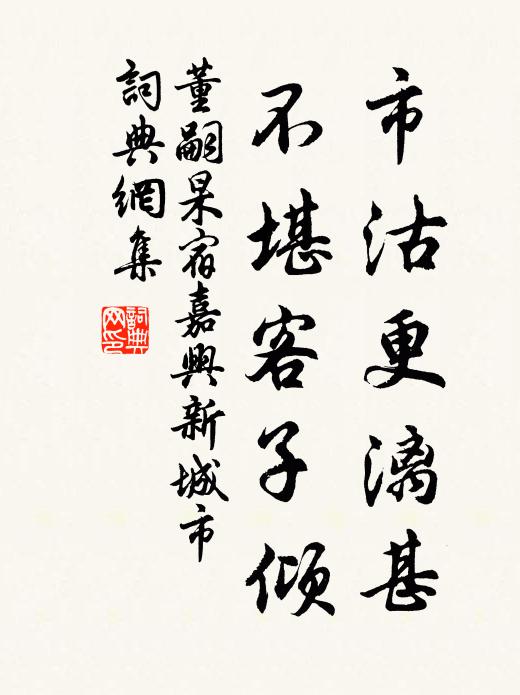 市沽更漓甚
不堪客子傾
董嗣杲宿嘉興新城市
詞典網集
詞典
网印